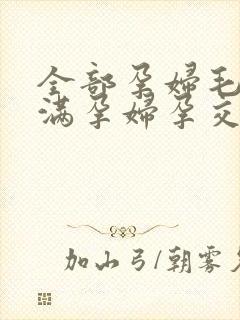 全部孕婦毛
滿孕婦孕交
加山弓/朝雾